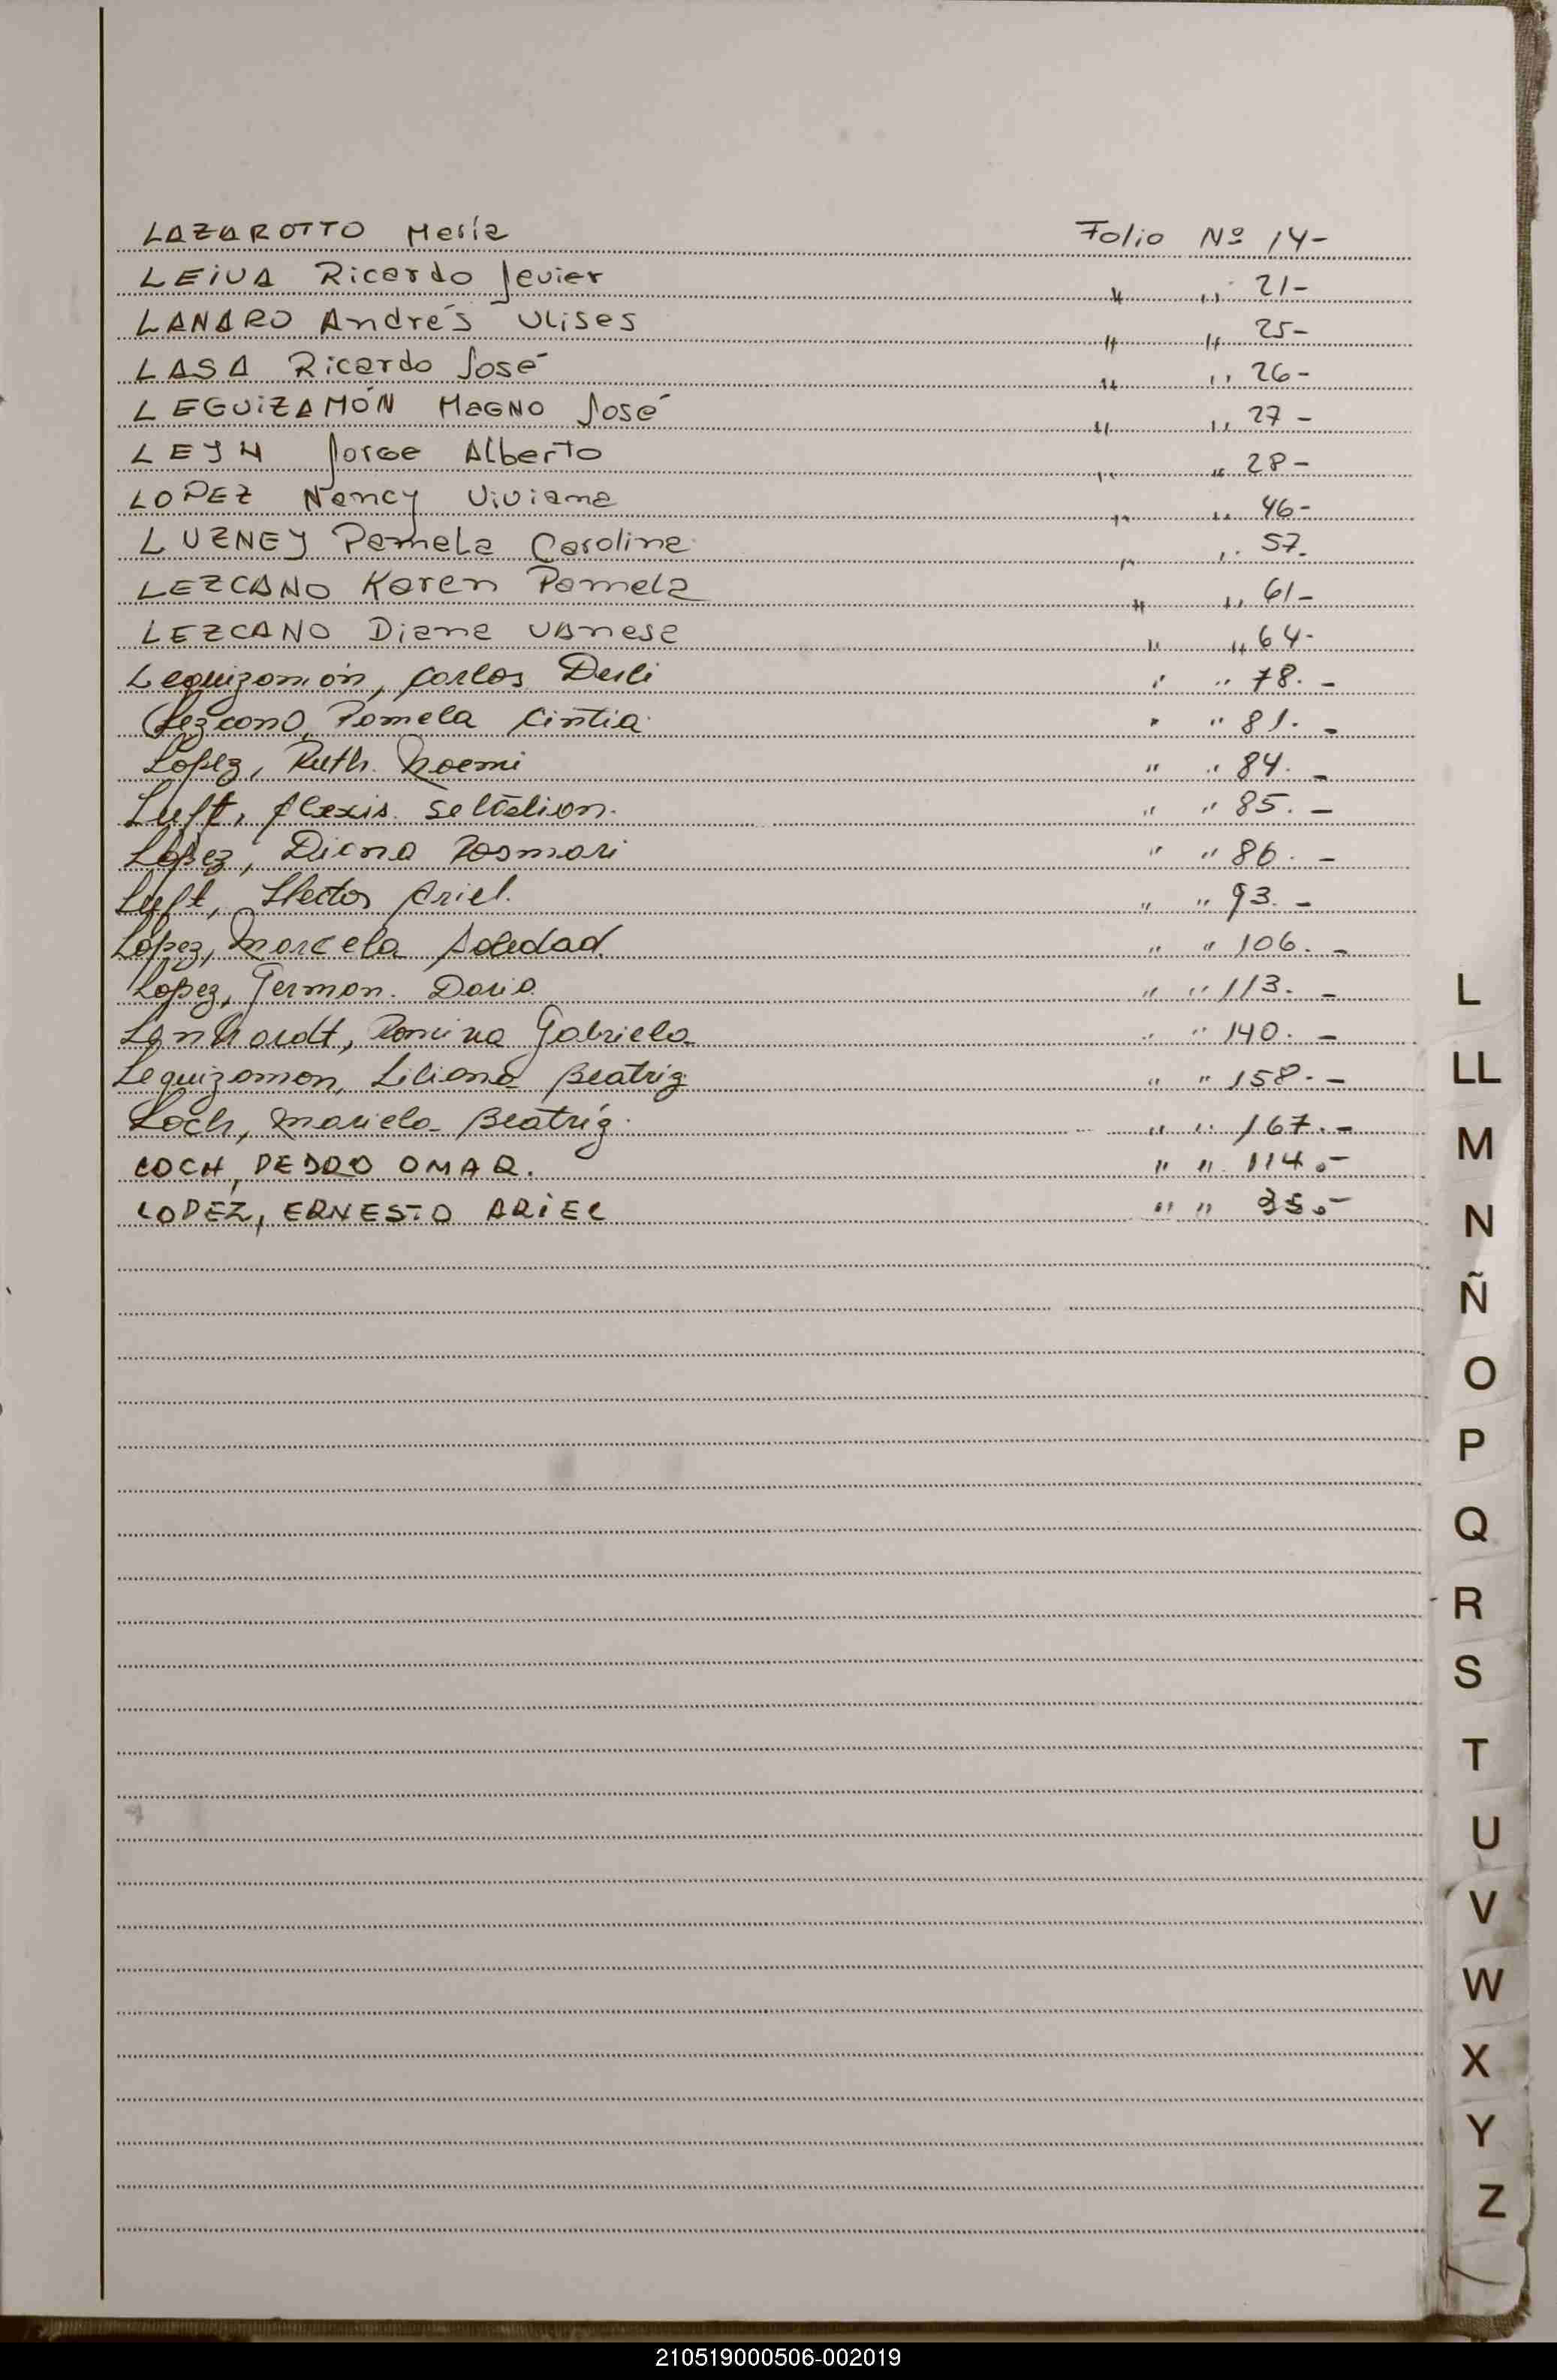 LAZAROTTO María Folio Nº 14-
LEIVA Ricardo Javier " " 21-
LANARO Andrés Ulises " " 25-
LASA Ricardo José " " 26-
LEGUIZAMÓN MAGNO José " " 27-
LEYH Jorge Alberto " " 28-
LOPEZ Nancy Viviana " " 46-
LUZNEY Pamela Carolina " " 57.
LEZCANO Karen Pamela " " 61-
LEZCANO Diana Vanesa " " 64-
Leguizamón, Carlos " " 78.-
Lezcano, Pamela Cintia " " 81.-
Lopez, Ruth Noemi " " 84.-
Luft, Alexis Sebastian. " " 85.-
López, Diana Rosmari " " 86.-
Luft, Hector Ariel. " " 93.-
López, Marcela Soledad. " " 106.-
Lopez, German. Dario " " 113.-
Lenhardt, Romina Gabriela " " 140.-
Leguizamon, Liliana Beatriz " " 158.-
Loch, Mariela Beatriz. " " 167.-
LOCH, PEDRO OMAR. " " 114.-
LOPEZ, ERNESTO ARIEL " " 35.-
L
LL
M
N
Ñ
O
P
Q
R
S
T
U
V
W
X
Y
Z
210519000506-002019